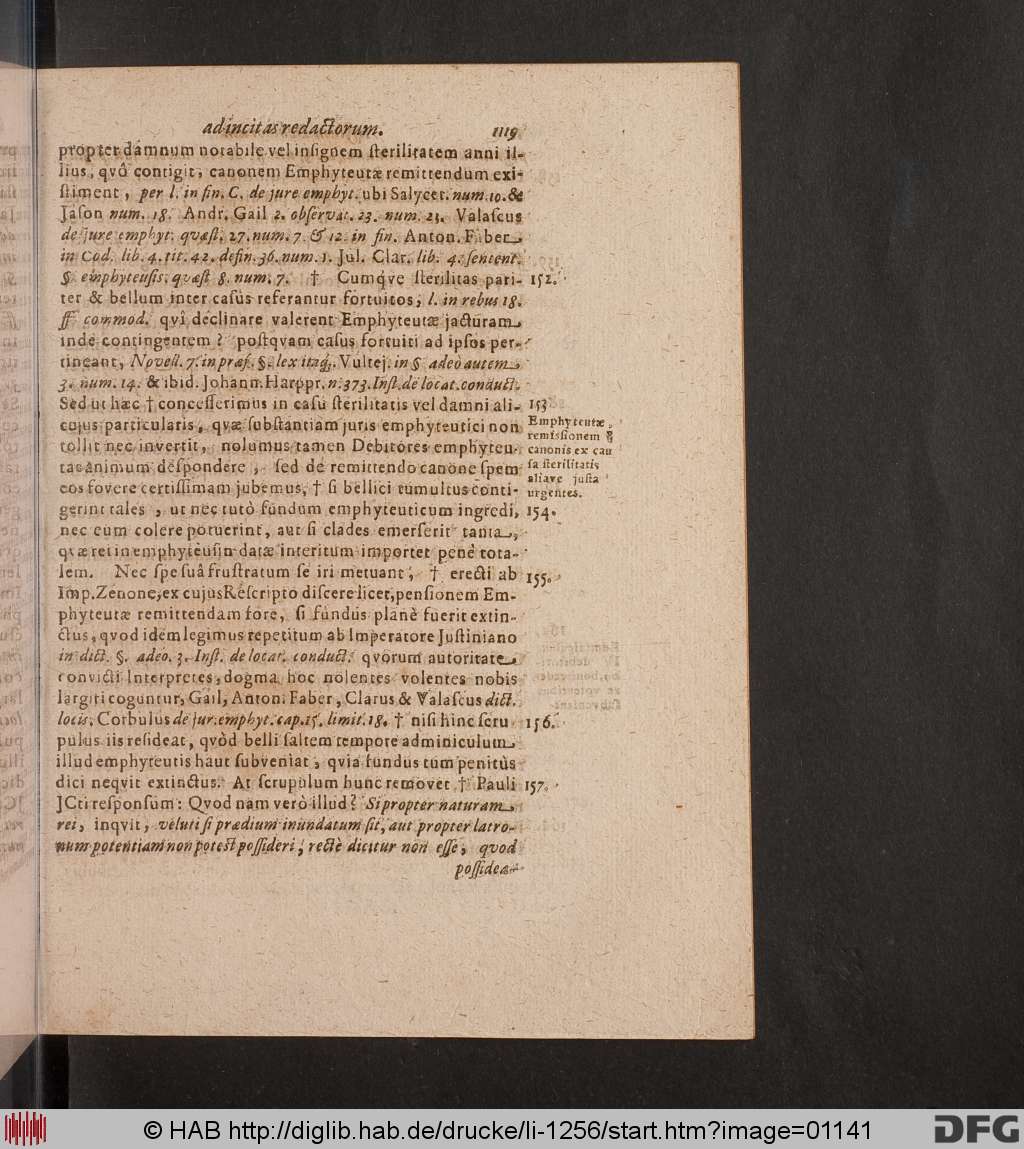 ad incitas redactorum. 1119
propter damnum notabile vel insignem sterilitatem anni il-
lius, qvô contigit, canonem Emphyteutæ remittendum exi-
stiment, per l. in fin. C. de jure emphyt. ubi Salycet. num. 10. &
Jason num. 18. Andr. Gail 2. observat. 23. num. 23. Valascus
de jure emphyt. quæst. 27. num. 7. & 12. in fin. Anton. Faber
in Cod. lib. 4. tit. 42. defin. 36. num. 1. Jul. Clar. lib. 4. sentent.
§. emphyteusis. quæst 8. num. 7. † Cumqve sterilitas pari- 152.
ter & bellum inter casus referantur fortuitos, l. in rebus 18.
ff commod. qvî declinare valerent Emphyteutæ jacturam
inde contingentem? postqvam casus fortuiti ad ipsos per-
tineant, Novell. 7. in præf. §. lex itaq;. Vultej. in § adeò autem
3. num. 14. & ibid. Johann. Harppr. n. 373. Inst. de locat. conduct.
Sed ut hæc † concesserimus in casu sterilitatis vel damni ali- 153
cujus particularis, qvæ substantiam juris emphyteutici non
tollit nec invertit, nolumus tamen Debitores emphyteu-
tas animum despondere, sed de remittendo canone spem
eos fovere certissimam jubemus, † si bellici tumultus conti-
gerint tales, ut nec tutò fundum emphyteuticum ingredi, 154.
nec eum colere potuerint, aut si clades emerserit tanta,
qvæ rei in emphyteusin datæ interitum importet penè tota-
lem. Nec spe suâ frustratum se iri metuant, † erecti ab 155.
Imp. Zenone, ex cujus Rescripto discere licet, pensionem Em-
phyteutæ remittendam fore, si fundus planè fuerit extin-
ctus, qvod idem legimus repetitum ab Imperatore Justiniano
in dict. §. adeo. 3. Inst. de locat. conduct. qvorum autoritate
convicti Interpretes, dogma hoc nolentes volentes nobis
largiri coguntur, Gail, Anton. Faber, Clarus & Valascus dict.
locis, Corbulus de jur. emphyt. cap. 15. limit. 18. † nisi hinc scru 156.
pulus iis resideat, qvòd belli saltem tempore adminiculum
illud emphyteutis haut subveniat, qvia fundus tum penitùs
dici neqvit extinctus. At scrupulum hunc removet † Pauli 157.
JCti responsum: Qvod nam verò illud? Si propter naturam
rei, inqvit, veluti si prædium inundatum sit, aut propter latro-
num potentiam non potest possideri, rectè dicitur non esse, quod
possidea-
Emphyteutæ
remissionem
canonis ex cau
sa sterilitatis
aliave justa
urgentes.
© HAB http://diglib.hab.de/drucke/li-1256/start.htm?image=01141
DFG